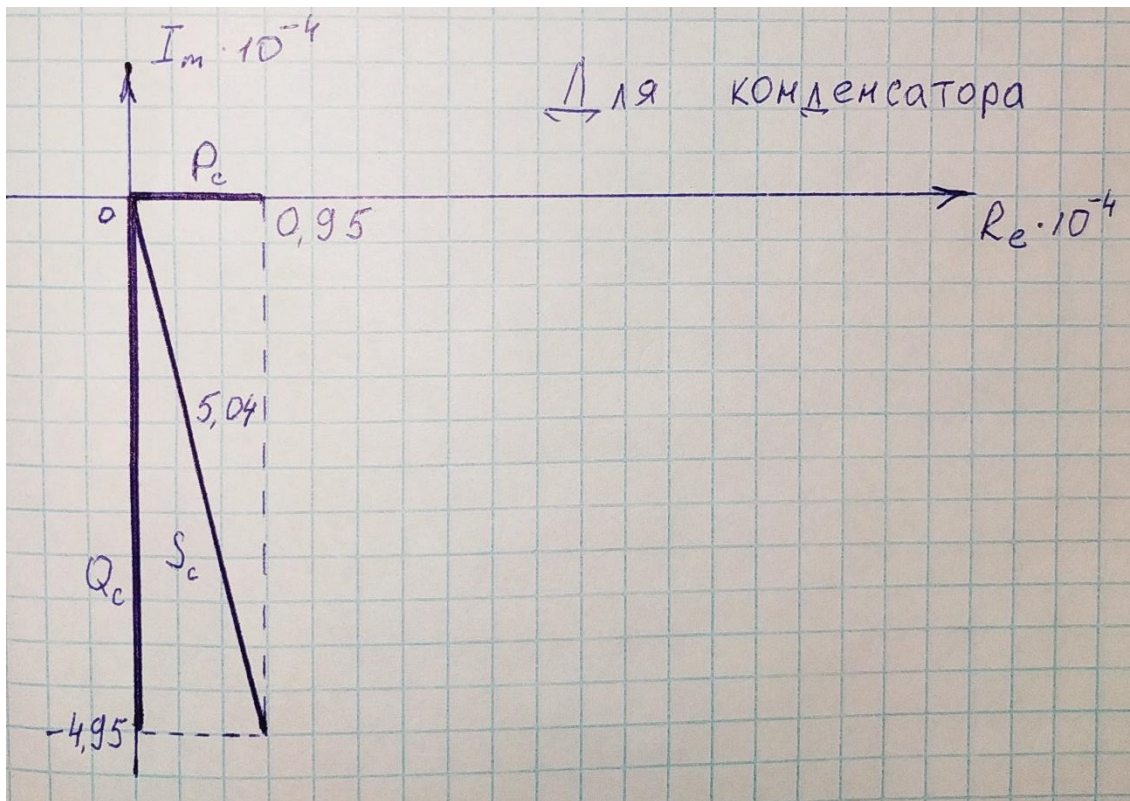 Im · 10⁻⁴
Для конденсатора
Pc
0
0,95
Re · 10⁻⁴
5,04
Sc
Qc
-4,95